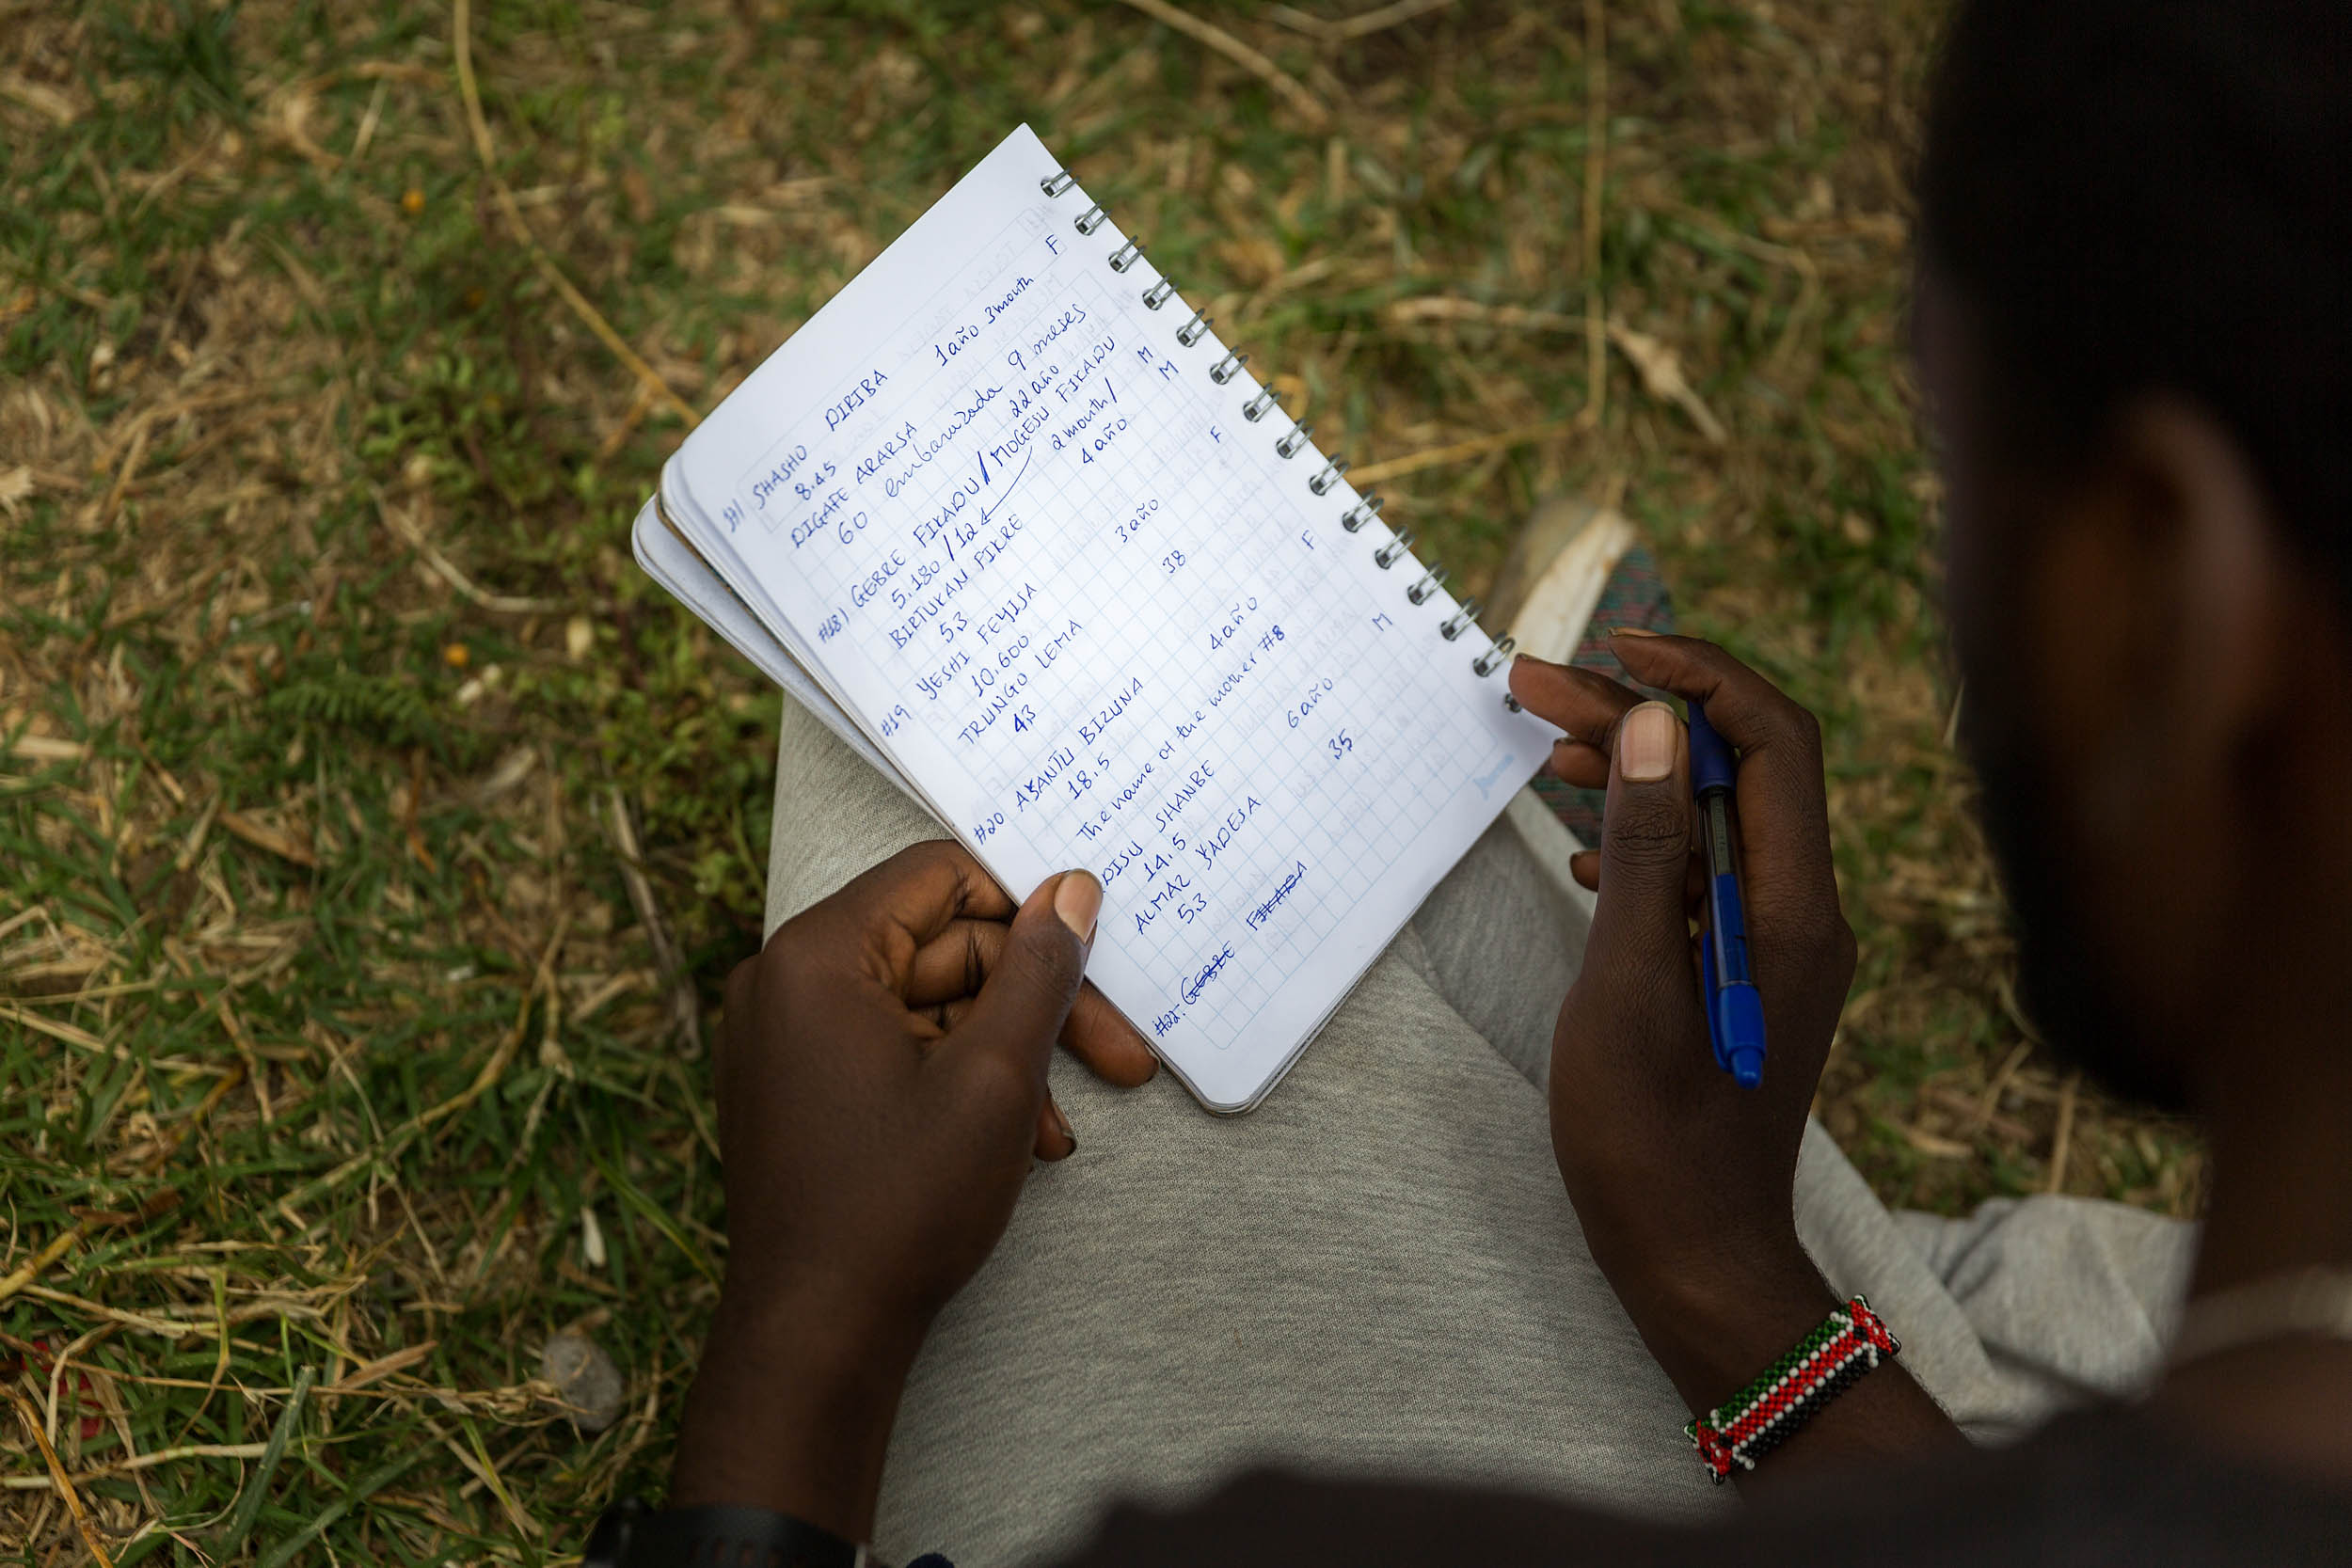 SHASHO DIRIBA 1año 3month F
8.45
DIGAFE ARARSA
60 embarazada 9 meses
22 año
#18) GEBRE FIKADU / MOGESU FIKADU M
5.180 / 12 2month / M
BIRTUKAN FIKRE 4 año
53
#19 YESHI FEYISA 3 año F
10.600
TRUNGO LEMA 38
43
#20 ASANTU BIZUNA 4 año F
18.5
The name of the mother #8
DISU SHANBE 6 año M
14.5
ALMAZ YADESA 35
53
#22. GEBRE